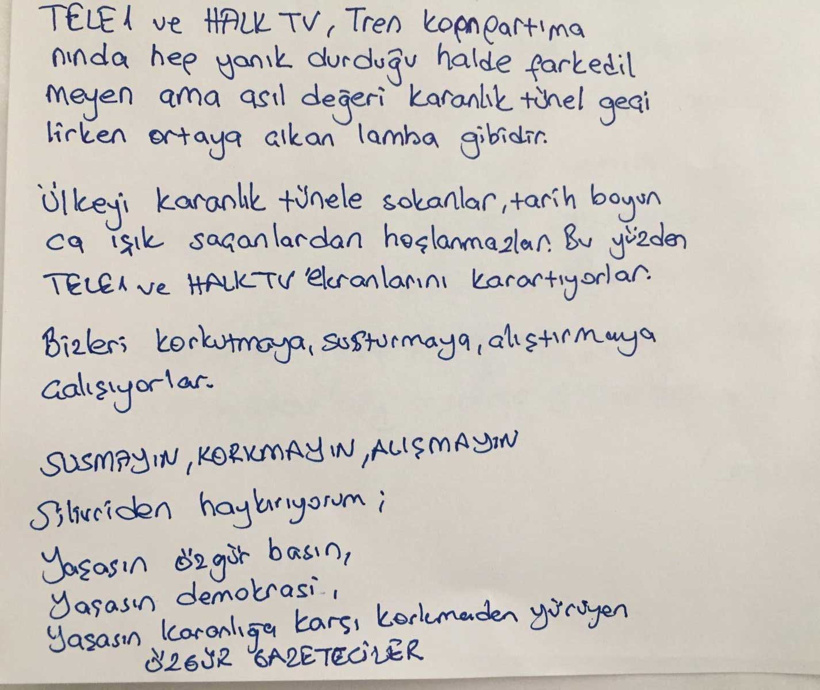 TELE1 ve HALK TV, Tren kopmpartıma
nında hep yanık durduğu halde farkedil
meyen ama asıl değeri karanlık tünel geçi
lirken ortaya çıkan lamba gibidir.
Ülkeyi karanlık tünele sokanlar, tarih boyun
ca ışık saçanlardan hoşlanmazlar. Bu yüzden
TELE1 ve HALKTV ekranlarını karartıyorlar.
Bizleri korkutmaya, susturmaya, alıştırmaya
çalışıyorlar.
SUSMAYIN, KORKMAYIN, ALIŞMAYIN
Silivriden haykırıyorum;
Yaşasın özgür basın,
Yaşasın demokrasi,
Yaşasın karanlığa karşı korkmadan yürüyen
ÖZGÜR GAZETECİLER